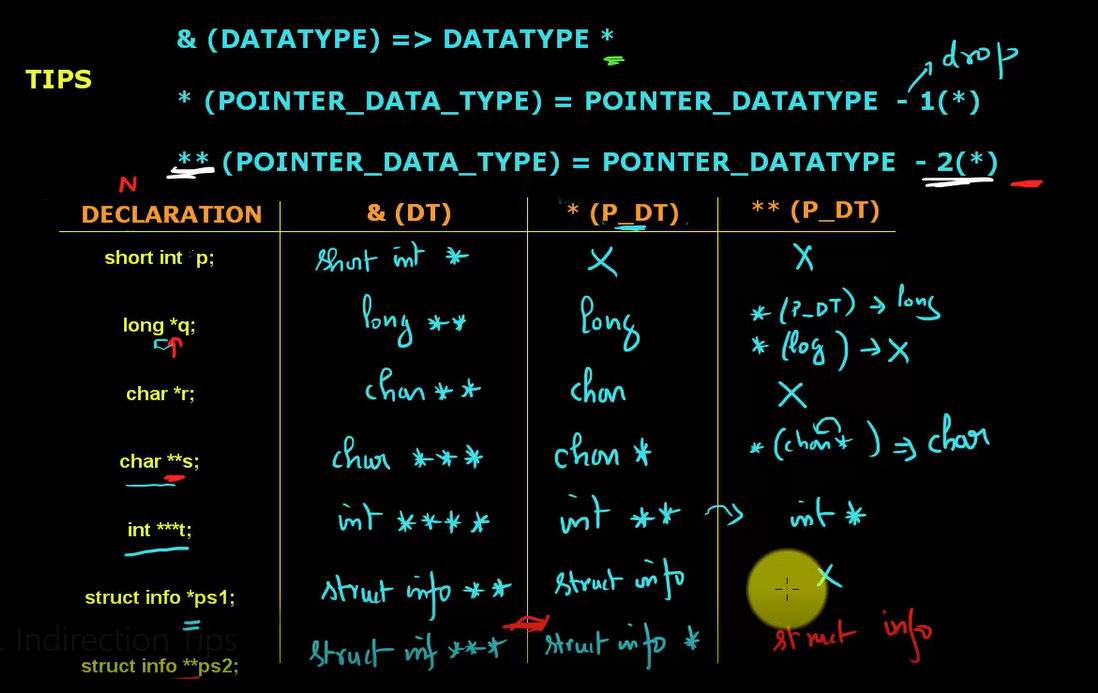 & (DATATYPE) => DATATYPE *
drop
TIPS
* (POINTER_DATA_TYPE) = POINTER_DATATYPE - 1(*)
** (POINTER_DATA_TYPE) = POINTER_DATATYPE - 2(*)
N
DECLARATION & (DT) * (P_DT) ** (P_DT)
short int p; short int * X X
long *q; long ** long * (P_DT) → long
* (log) → X
char *r; char ** char X
char **s; char *** char * * (char *) ⇒ char
int ***t; int **** int ** → int *
struct info *ps1; struct info ** struct info X
. Indirection Tips
struct info **ps2; struct inf *** struct info * struct info